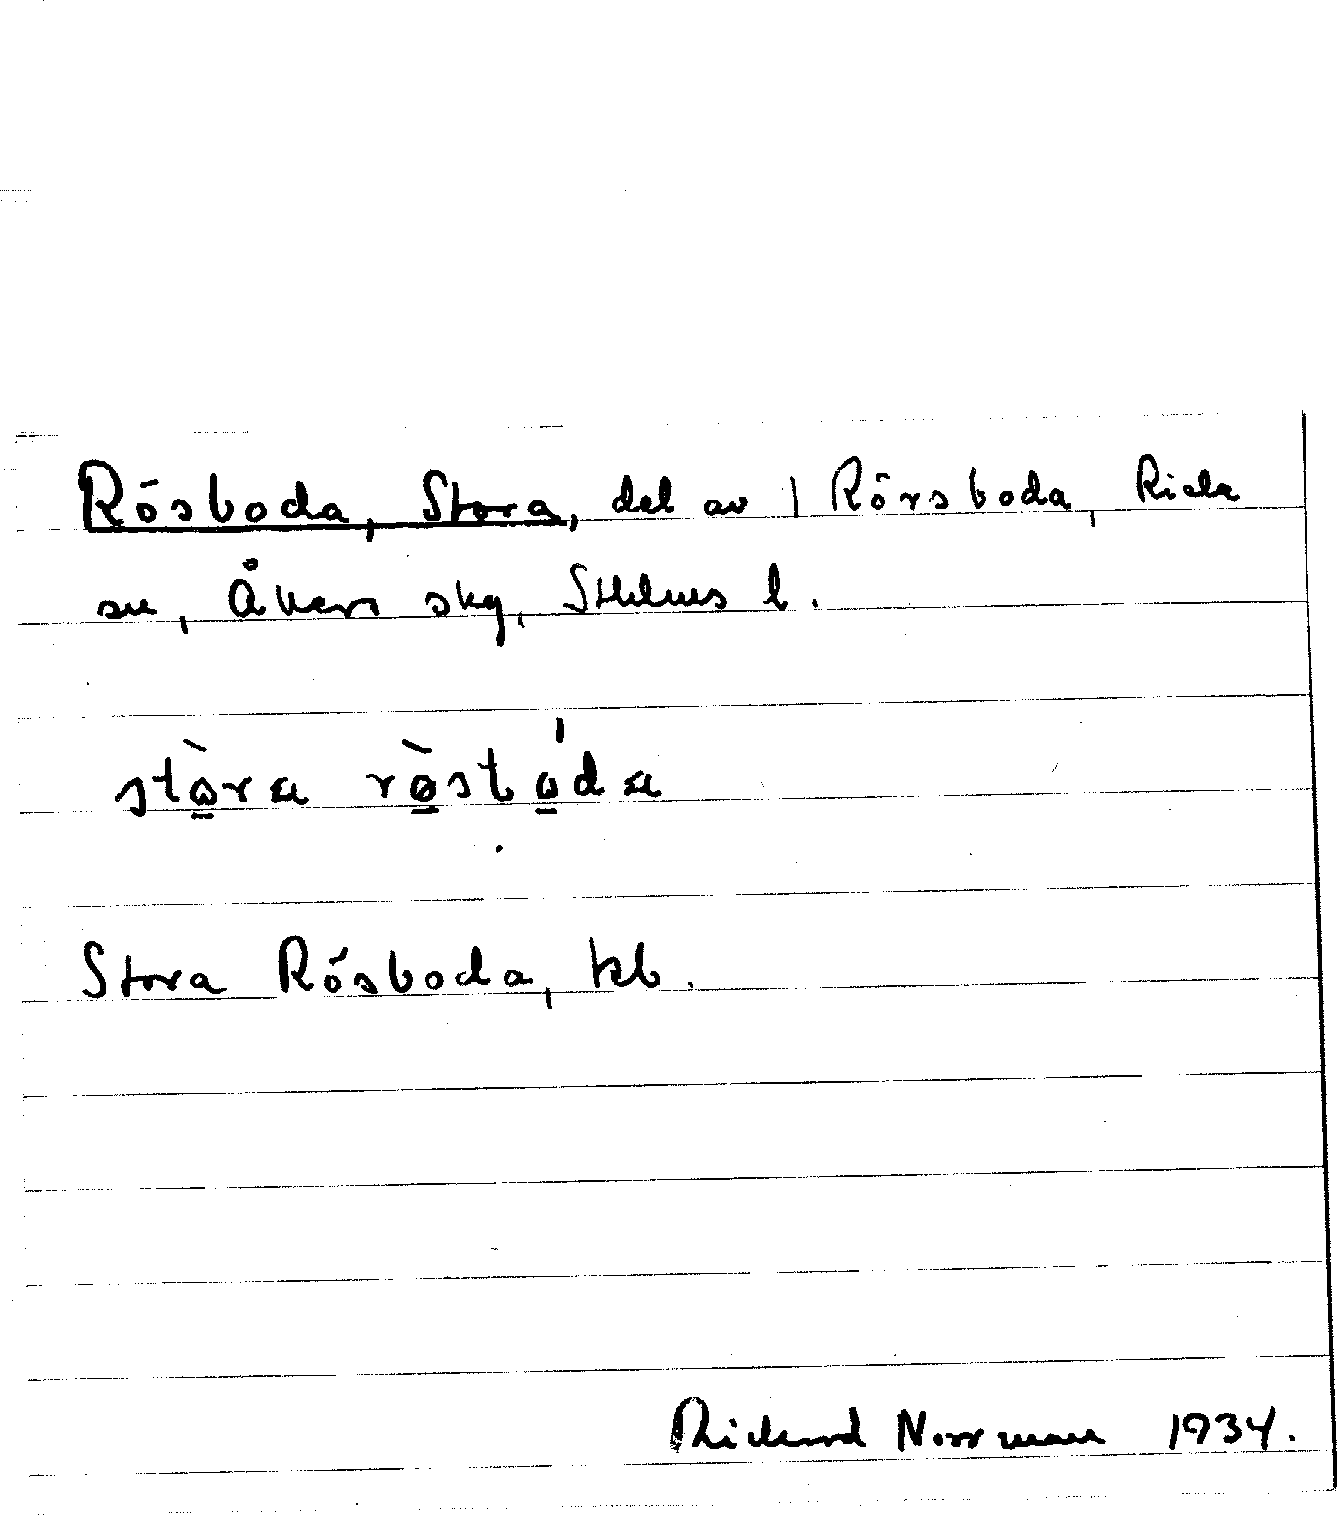 Rösboda, Stora, del av 1 Rörsboda, Riala
sn, Åkers skg, Sthlms l.
Stora Rösboda, kb.
Rickard Norrman 1934.